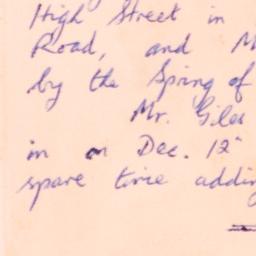 High Street in
Road, and M
by the Spring of
Mr. Giles
in on Dec. 12
spare time adding